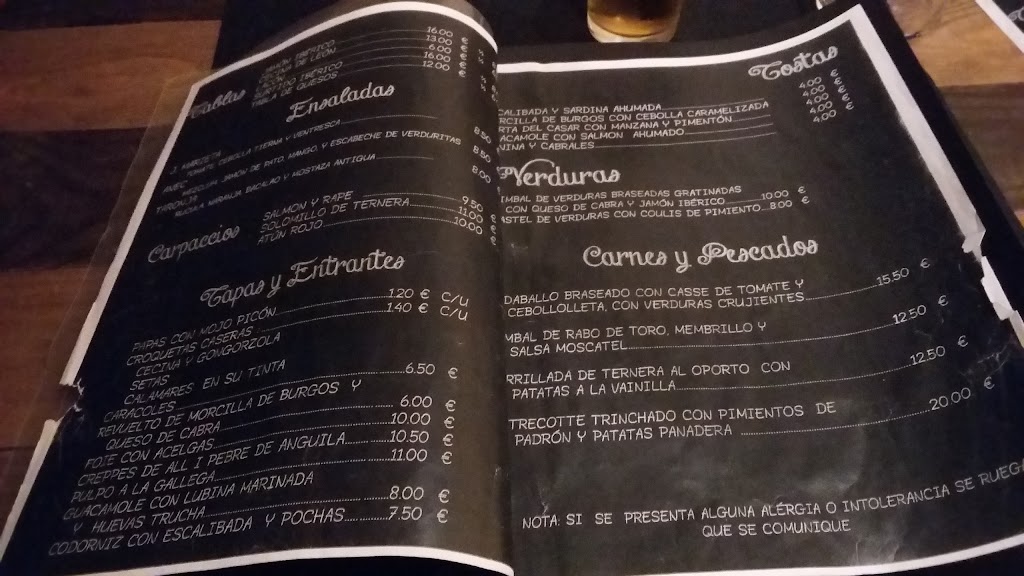 Tablas
IBÉRICO 16.00 €
13.00 €
DE LEÓN 6.00 €
IBÉRICO 6.00 €
TABLA DE QUESOS 12.00 €
Ensaladas
TOMATE, CEBOLLA TIERNA Y VENTRESCA 8.50
MESCLUM, JAMÓN DE PATO, MANGO, Y ESCABECHE DE VERDURITAS 8.50
TARONJA
RUCULA NARANJA, BACALAO Y MOSTAZA ANTIGUA 8.00
Carpaccios
SALMON Y RAPE 9.50 €
SOLOMILLO DE TERNERA 11.00 €
ATÚN ROJO 10.00 €
Tapas y Entrantes
PAPAS CON MOJO PICÓN 1.20 € C/U
CROQUETAS CASERAS 1.40 € C/U
CECINA Y GONGORZOLA
SETAS
CALAMARES EN SU TINTA
CARACOLES 6.50 €
REVUELTO DE MORCILLA DE BURGOS Y
QUESO DE CABRA 6.00 €
FOIE CON ACELGAS 10.00 €
CREPPES DE ALL I PEBRE DE ANGUILA 10.50 €
PULPO A LA GALLEGA 11.00 €
GUACAMOLE CON LUBINA MARINADA
Y HUEVAS TRUCHA 8.00 €
CODORNIZ CON ESCALIBADA Y POCHAS 7.50 €
Tostas
CALIBADA Y SARDINA AHUMADA 4.00 €
RCILLA DE BURGOS CON CEBOLLA CARAMELIZADA 4.00 €
RTA DEL CASAR CON MANZANA Y PIMENTÓN 4.00 €
ACAMOLE CON SALMÓN AHUMADO 4.00 €
INA Y CABRALES 4.00 €
Verduras
IMBAL DE VERDURAS BRASEADAS GRATINADAS
CON QUESO DE CABRA Y JAMÓN IBÉRICO 10.00 €
ASTEL DE VERDURAS CON COULIS DE PIMIENTO 8.00 €
Carnes y Pescados
DABALLO BRASEADO CON CASSE DE TOMATE Y
CEBOLLOLLETA, CON VERDURAS CRUJIENTES 15.50 €
MBAL DE RABO DE TORO, MEMBRILLO Y
SALSA MOSCATEL 12.50 €
RRILLADA DE TERNERA AL OPORTO CON
PATATAS A LA VAINILLA 12.50 €
TRECOTTE TRINCHADO CON PIMIENTOS DE
PADRÓN Y PATATAS PANADERA 20.00 €
NOTA: SI SE PRESENTA ALGUNA ALÉRGIA O INTOLERANCIA SE RUEGA
QUE SE COMUNIQUE